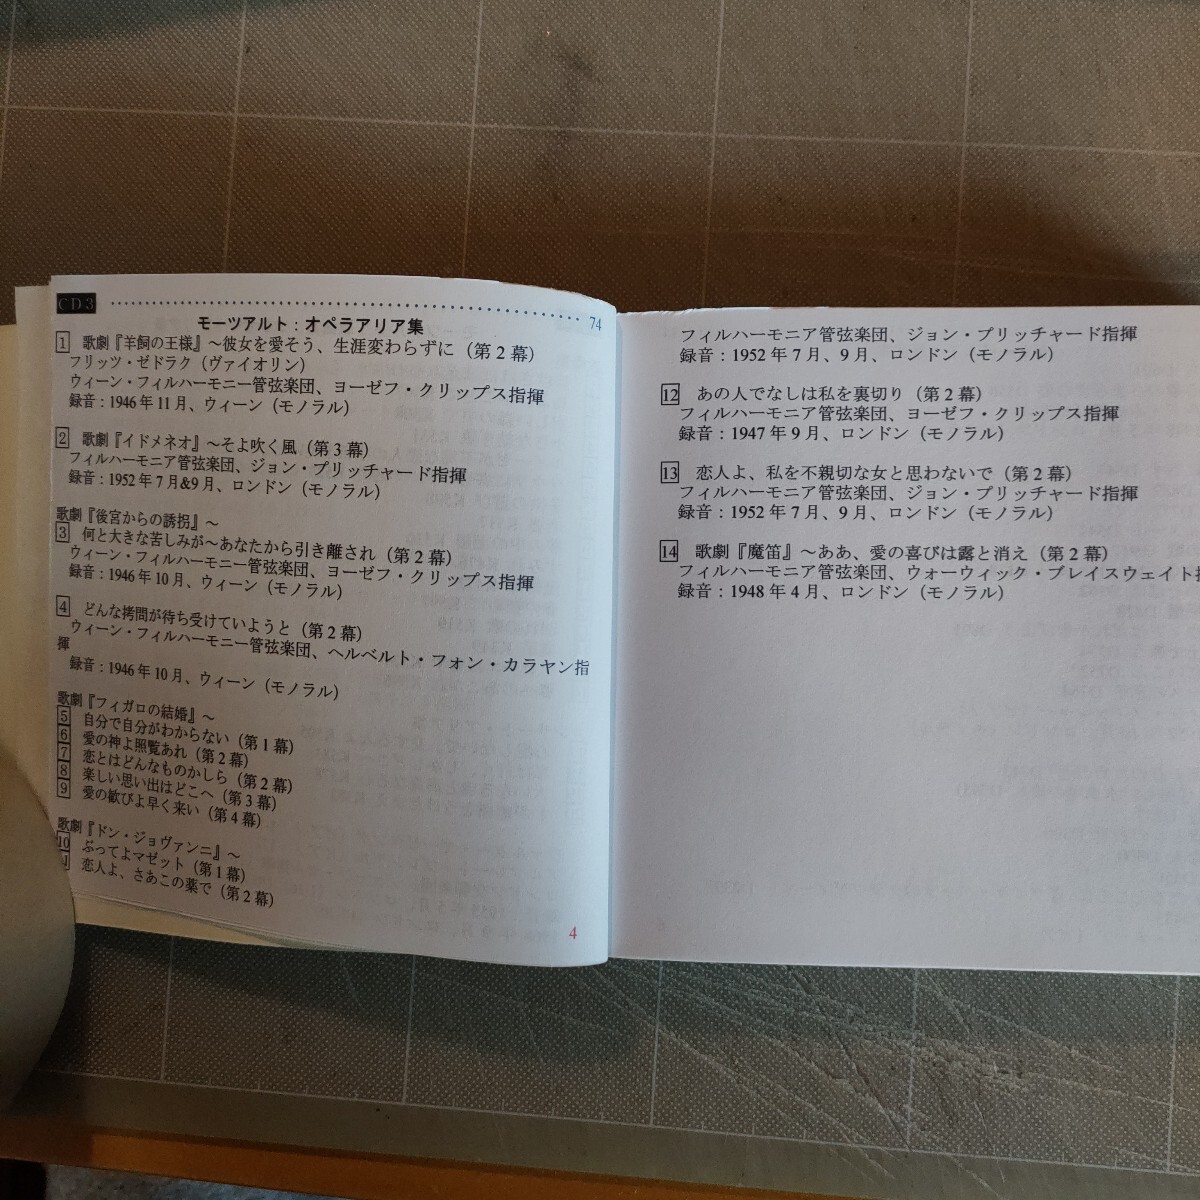 CD3 ........................................ 74
モーツアルト：オペラアリア集
1 歌劇『羊飼の王様』～彼女を愛そう、生涯変わらずに（第2幕）
フリッツ・ゼドラク（ヴァイオリン）
ウィーン・フィルハーモニー管弦楽団、ヨーゼフ・クリップス指揮
録音：1946年11月、ウィーン（モノラル）
2 歌劇『イドメネオ』～そよ吹く風（第3幕）
フィルハーモニア管弦楽団、ジョン・プリッチャード指揮
録音：1952年7月&9月、ロンドン（モノラル）
歌劇『後宮からの誘拐』～
3 何と大きな苦しみが～あなたから引き離され（第2幕）
ウィーン・フィルハーモニー管弦楽団、ヨーゼフ・クリップス指揮
録音：1946年10月、ウィーン（モノラル）
4 どんな拷問が待ち受けていようと（第2幕）
ウィーン・フィルハーモニー管弦楽団、ヘルベルト・フォン・カラヤン指
揮
録音：1946年10月、ウィーン（モノラル）
歌劇『フィガロの結婚』～
5 自分で自分がわからない（第1幕）
6 愛の神よ照覧あれ（第2幕）
7 恋とはどんなものかしら（第2幕）
8 楽しい思い出はどこへ（第3幕）
9 愛の歓びよ早く来い（第4幕）
歌劇『ドン・ジョヴァンニ』～
10 ぶってよマゼット（第1幕）
恋人よ、さあこの薬で（第2幕）
4
フィルハーモニア管弦楽団、ジョン・プリッチャード指揮
録音：1952年7月、9月、ロンドン（モノラル）
12 あの人でなしは私を裏切り（第2幕）
フィルハーモニア管弦楽団、ヨーゼフ・クリップス指揮
録音：1947年9月、ロンドン（モノラル）
13 恋人よ、私を不親切な女と思わないで（第2幕）
フィルハーモニア管弦楽団、ジョン・プリッチャード指揮
録音：1952年7月、9月、ロンドン（モノラル）
14 歌劇『魔笛』～ああ、愛の喜びは露と消え（第2幕）
フィルハーモニア管弦楽団、ウォーウィック・ブレイスウェイト指
録音：1948年4月、ロンドン（モノラル）